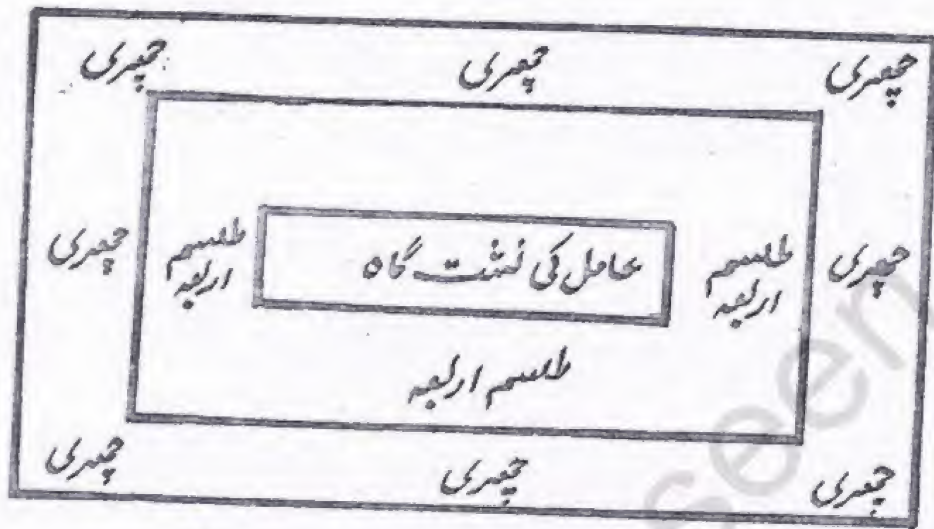 چھری چھری چھری
چھری طلسم اربعہ عامل کی نشت گاہ طلسم اربعہ چھری
طلسم اربعہ
چھری چھری چھری
seen